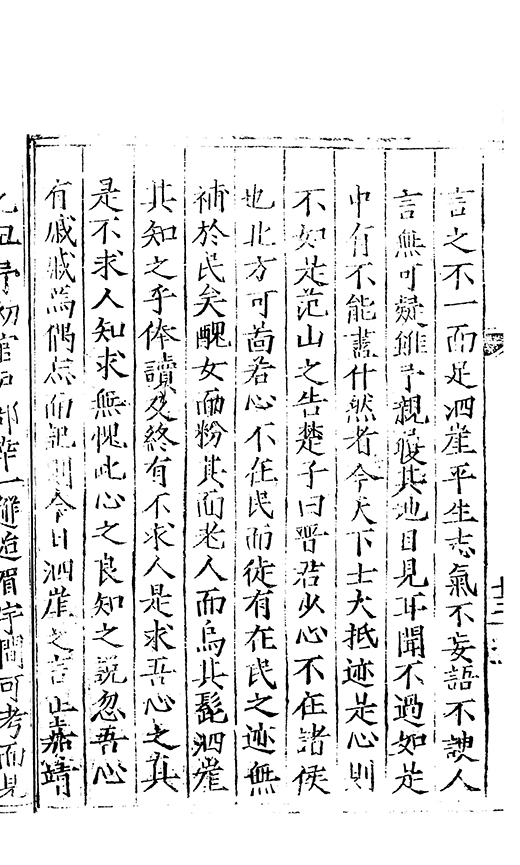 言之不一而足泗崖平生志氣不妄語不諛人
言無可疑雖予親履其地目見耳聞不過如是
中有不能盡什然者今天下士大抵迹是心則
不如是范山之告楚子曰晋君少心不在諸侯
也北方可啚若心不在民而徒有在民之迹無
補於民矣醜女靣粉其面老人而烏其髭泗崖
其知之乎俸讀及終有不求人是求吾心之真
是不求人知求無愧此心之良知之說忽吾心
有戚戚焉偶忘而記則今日泗崖之言正嘉靖
乙丑予初官戶部 一 眉宇間可考而見
十三